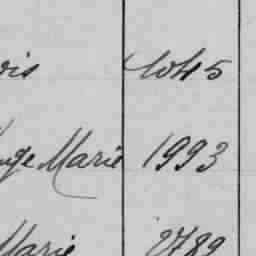 ois 1045
ange Marie 1993
Marie 2789